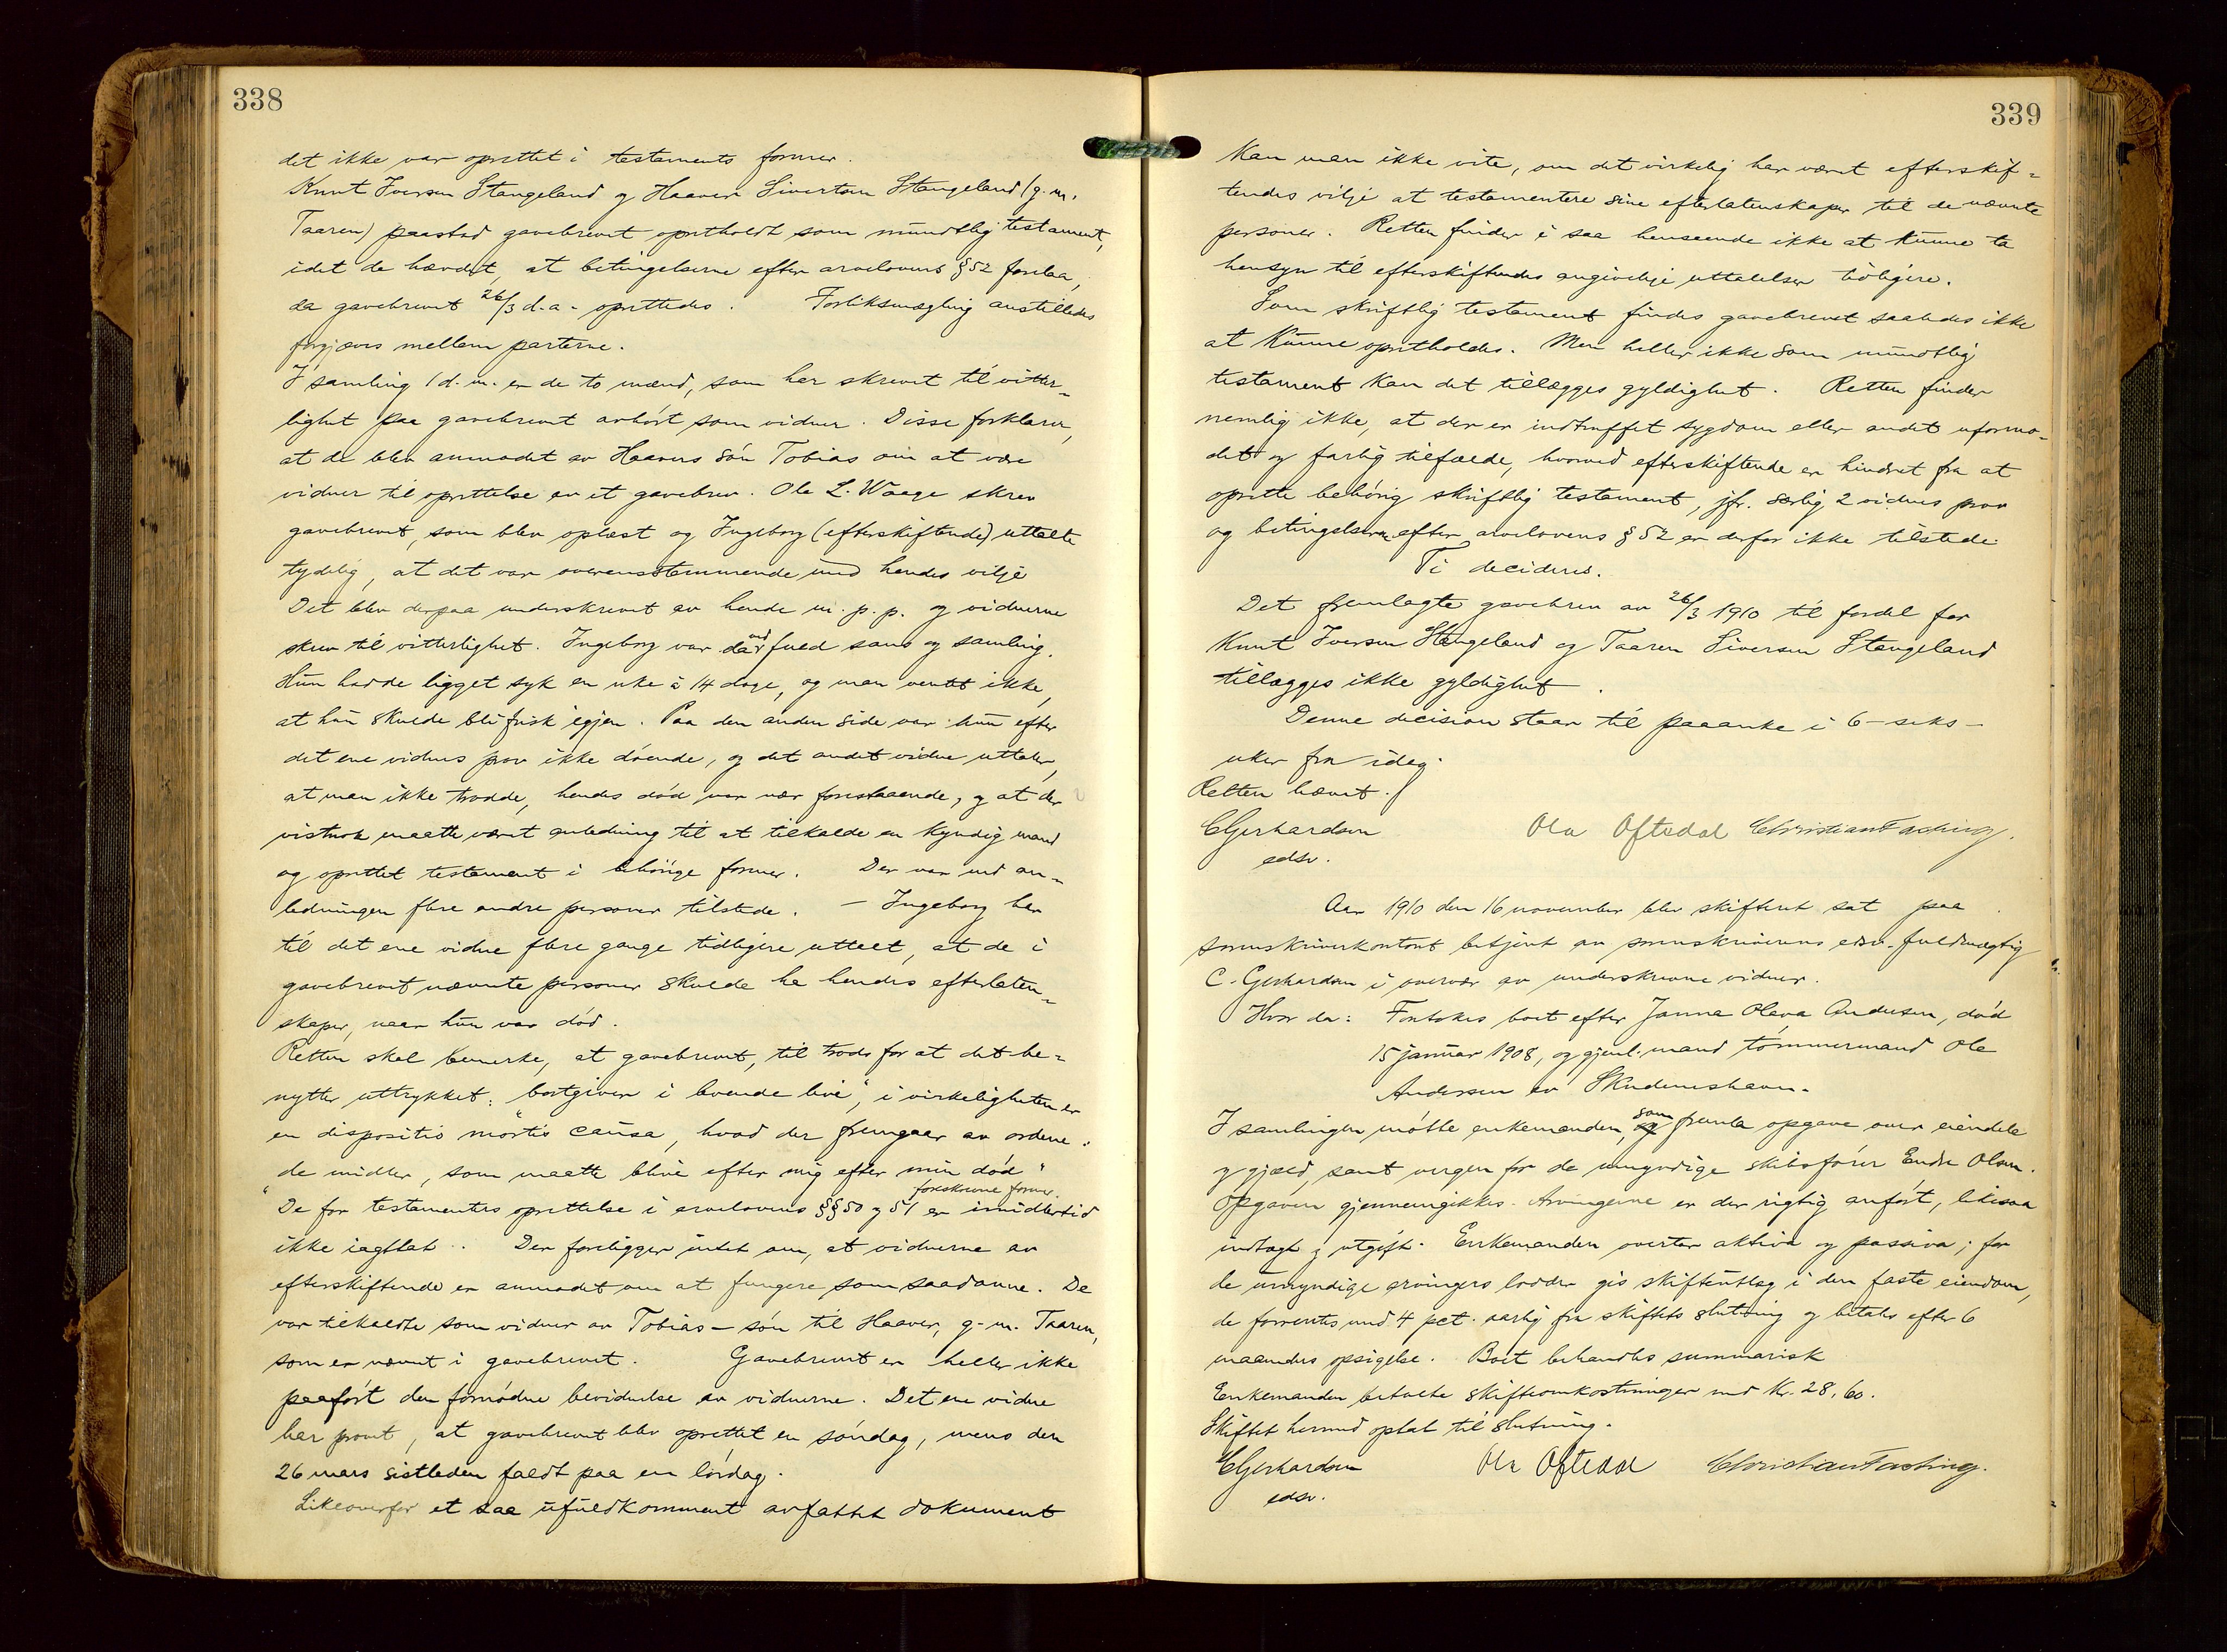 338
det ikke var oprettet i testaments former.
Knut Iversen Stangeland og Haaver Sivertsen Stangeland (g. m.
Taaren) paastod gavebrevet opretholdt som mundtlig testament,
idet de hævdet, at betingelserne efter arvelovens § 52 forelaa,
da gavebrevet 26/3 d.a. oprettedes. Forliksmægling anstilledes
forgjæves mellem parterne.
I samling 1 d.m. er de to mænd, som har skrevet til vitter-
lighet paa gavebrevet avhørt som vidner. Disse forklarer,
at de blev anmodet av Haavers søn Tobias om at være
vidner til oprettelse av et gavebrev. Ole L. Waage skrev
gavebrevet, som blev oplæst og Ingeborg (efterskiftende) uttalte
tydelig, at det var overensstemmende med hendes vilje
Det blev derpaa underskrevet av hende m. p. p. og vidnerne
skrev til vitterlighet. Ingeborg var da ved fuld sans og samling.
Hun hadde ligget syk en uke à 14 dage, og man ventet ikke,
at hun skulde bli frisk igjen. Paa den anden side var hun efter
det ene vidnes prov ikke døende, og det andet vidne uttaler,
at man ikke trodde, hendes død var nær forestaaende, og at der
vistnok maatte været anledning til at tilkalde en kyndig mand
og oprettet testament i behørige former. Der var ved an-
ledningen flere andre personer tilstede. - Ingeborg har
til det ene vidne flere gange tidligere uttalt, at de i
gavebrevet nævnte personer skulde ha hendes efterlaten-
skaper, naar hun var død.
Retten skal bemerke, at gavebrevet, til trods for at det be-
nytter uttrykket: "bortgiver i levende live", i virkeligheten er
en dispositio mortis causa, hvad der fremgaar av ordene:
"de midler, som maatte blive efter mig efter min død"
foreskrevne former
De for testamentes oprettelse i arvelovens §§ 50 og 51 er imidlertid
ikke iagttat. Der foreligger intet om, at vidnerne av
efterskiftende er anmodet om at fungere som saadanne. De
var tilkaldte som vidner av Tobias – søn til Haaver, g. m. Taaren,
som er nævnt i gavebrevet. Gavebrevet er heller ikke
paaført den fornødne bevidnelse av vidnerne. Det ene vidne
har provet, at gavebrevet blev oprettet en søndag, mens den
26 mars sistleden faldt paa en lørdag.
Likeoverfor et saa ufuldkomment avfattet dokument
339
kan man ikke vite, om det virkelig har været efterskif-
tendes vilje at testamentere sine efterlatenskaper til de nævnte
personer. Retten finder i saa henseende ikke at kunne ta
hensyn til efterskiftendes angivelige uttalelser tidligere.
Som skriftlig testament findes gavebrevet saaledes ikke
at kunne opretholdes. Men heller ikke som mundtlig
testament kan det tillægges gyldighet. Retten finder
nemlig ikke, at der er indtruffet sygdom eller andet uformo-
det og farlig tilfælde, hvorved efterskiftende er hindret fra at
oprette behørig skriftlig testament, jfr. særlig 2 vidnes prov
og betingelserne efter arvelovens § 52 er derfor ikke tilstede.
Ti decideres.
Det fremlagte gavebrev av 26/3 1910 til fordel for
Knut Iversen Stangeland og Taaren Siversen Stangeland
tillægges ikke gyldighet.
Denne decision staar til paaanke i 6 - seks -
uker fra idag.
Retten hævet.
CGerhardsen Ola Oftedal Christian Fasting.
edsv.
Aar 1910 den 16 november blev skifteret sat paa
sorenskriverkontoret betjent av sorenskriverens edsv. fuldmægtig
C. Gerhardsen i overvær av underskrevne vidner.
Hvor da: Foretokes boet efter Janna Olava Andersen, død
15 januar 1908, og gjenl. mand tømmermand Ole
Andersen av Skudeneshavn.
I samlingen møtte enkemanden, som fremla opgave over eiendele
og gjæld, samt vergen for de umyndige skibsfører Endre Olsen.
Opgaven gjennemgikkes. Arvingerne er der rigtig anført, likesaa
indtægt og utgift. Enkemanden overtar aktiva og passiva; for
de umyndige arvingers lodder gis skifteutlæg i den faste eiendom,
de forrentes med 4 pct. aarlig fra skiftets slutning og betales efter 6
maaneders opsigelse. Boet behandles summarisk
Enkemanden betalte skifteomkostninger med kr. 28,60.
Skiftet hermed optat til slutning.
CGerhardsen Ola Oftedal Christian Fasting.
edsv.